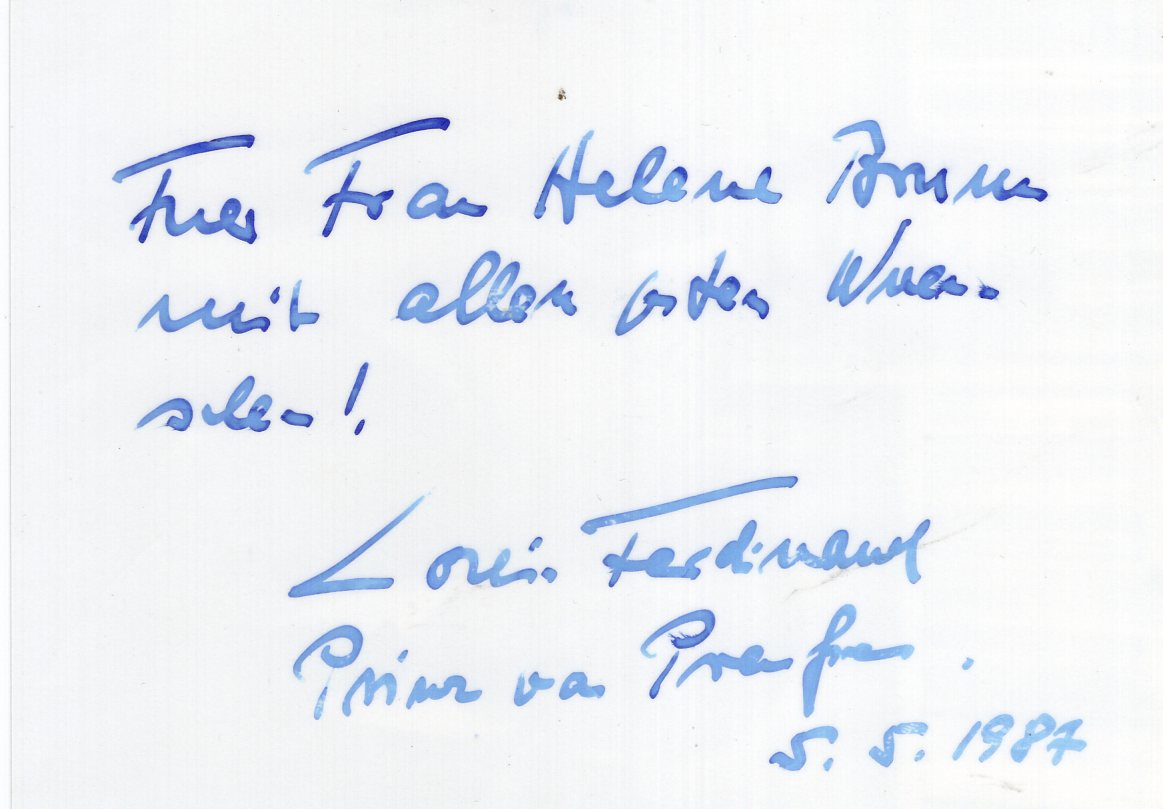 Fuer Frau Helene Brunn
mit allen guten Wuen-
schen!
Louis Ferdinand
Prinz von Preußen.
5. 5. 1987